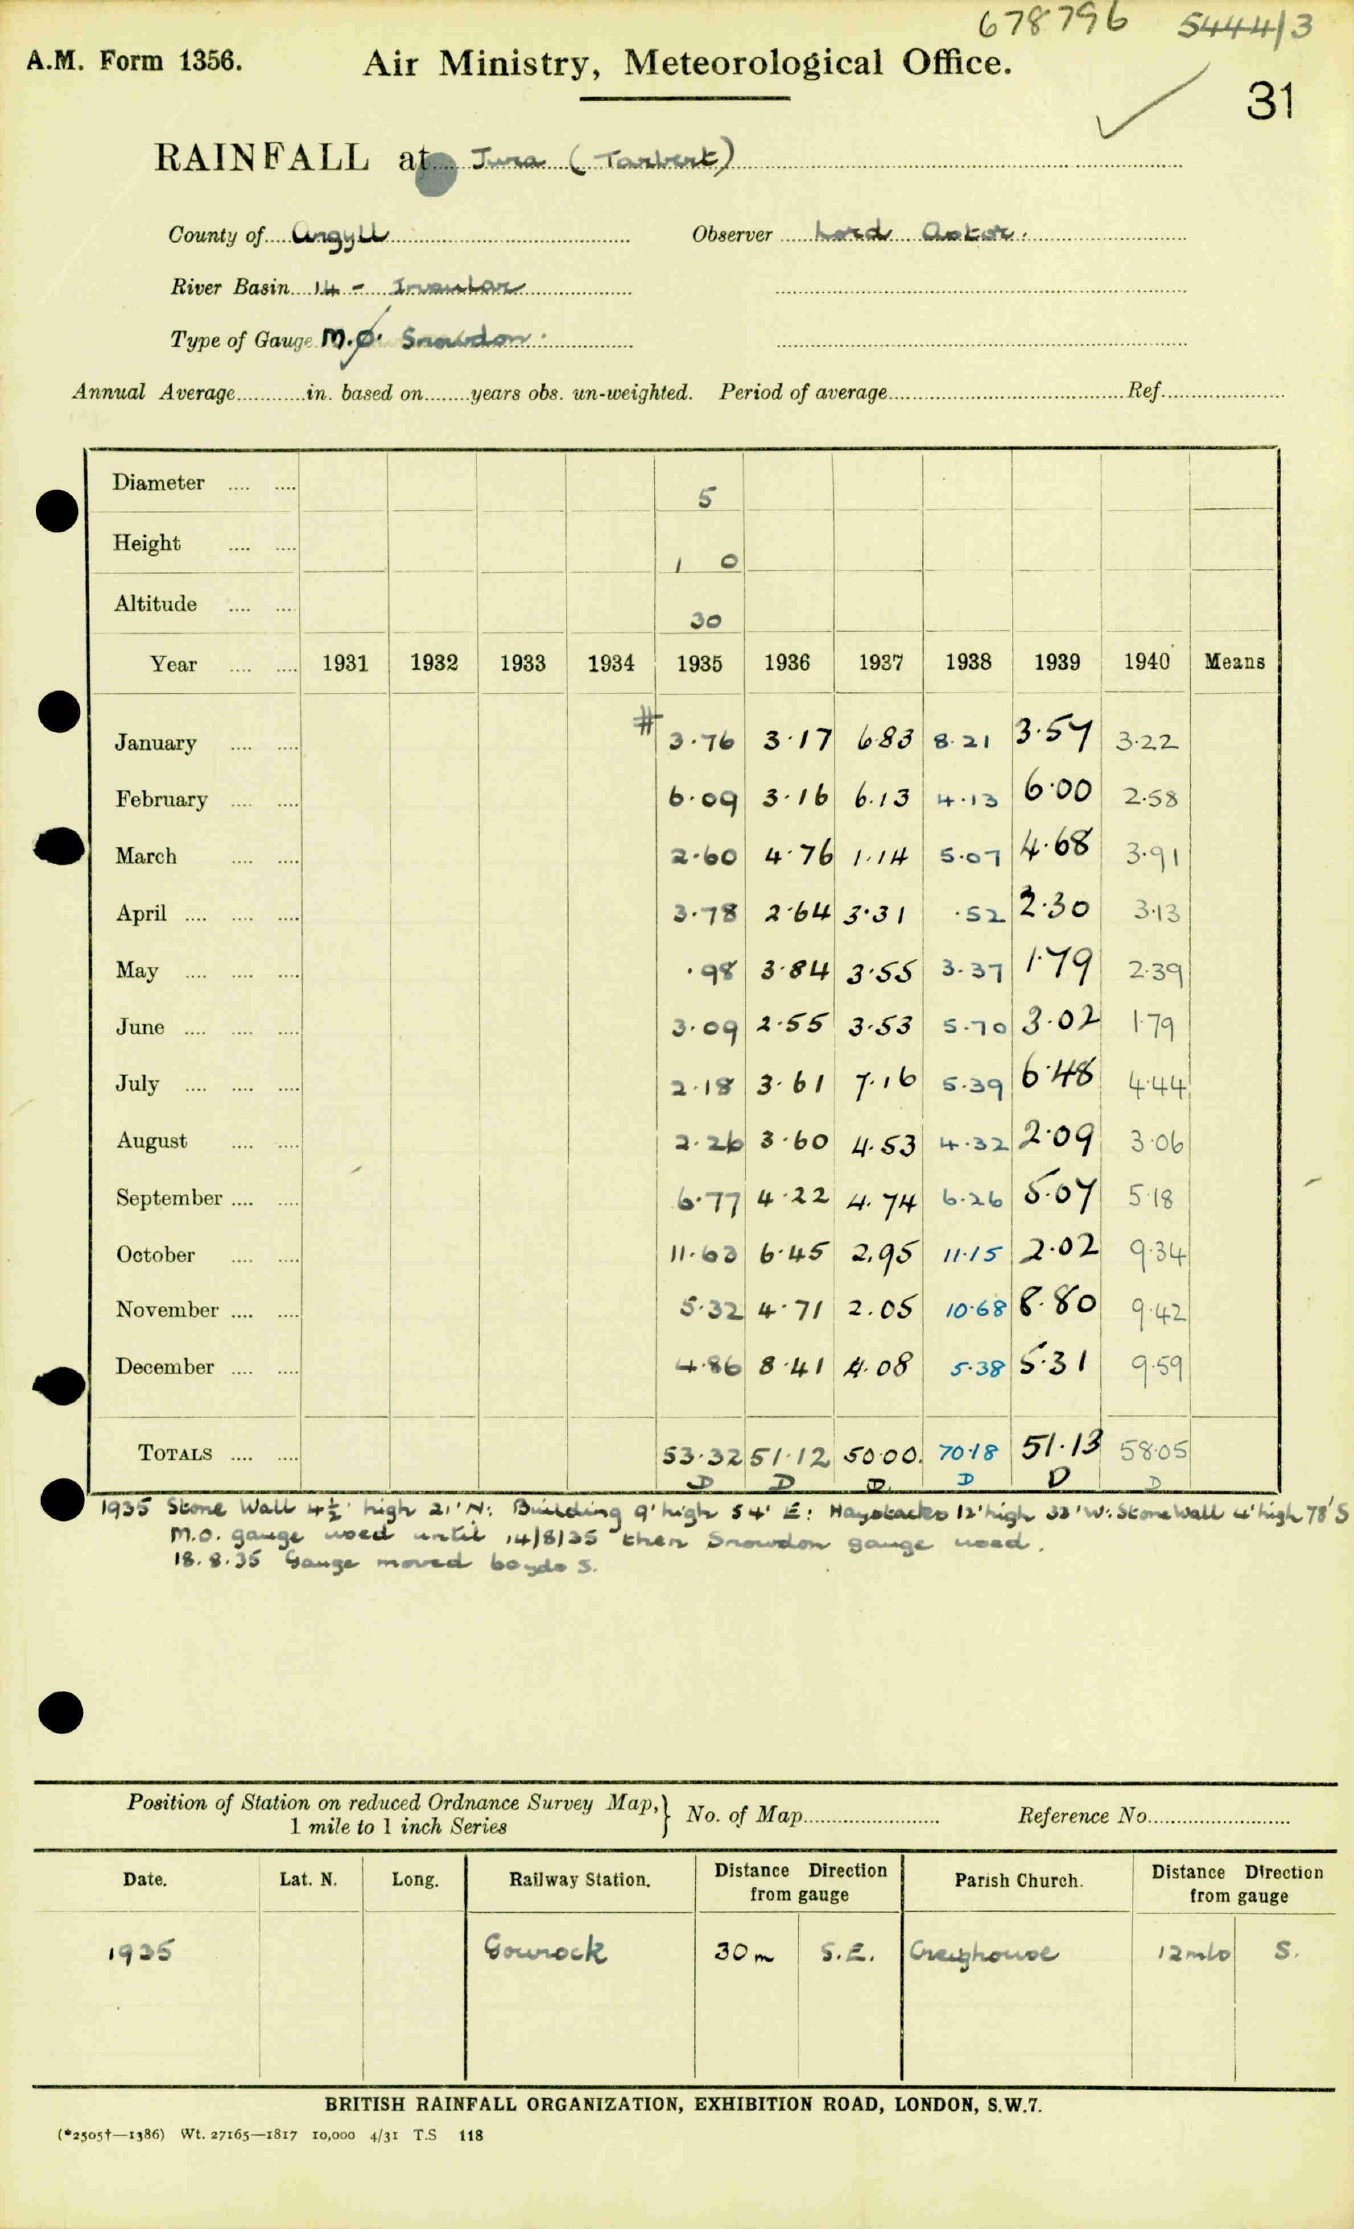 678796 5444/3
A.M. Form 1356. Air Ministry, Meteorological Office.
31
RAINFALL at Jura (Tarbert)
County of Argyll Observer Lord Astor.
River Basin 14 - Insular
Type of Gauge M.O. Snowdon.
Annual Average in. based on years obs. un-weighted. Period of average Ref.
Diameter 5
Height 1 0
Altitude 30
Year 1931 1932 1933 1934 1935 1936 1937 1938 1939 1940 Means
January # 3.76 3.17 6.83 8.21 3.57 3.22
February 6.09 3.16 6.13 4.13 6.00 2.58
March 2.60 4.76 1.14 5.07 4.68 3.91
April 3.78 2.64 3.31 .52 2.30 3.13
May .98 3.84 3.55 3.37 1.79 2.39
June 3.09 2.55 3.53 5.70 3.02 1.79
July 2.18 3.61 7.16 5.39 6.48 4.44
August 2.26 3.60 4.53 4.32 2.09 3.06
September 6.77 4.22 4.74 6.26 5.07 5.18
October 11.63 6.45 2.95 11.15 2.02 9.34
November 5.32 4.71 2.05 10.68 8.80 9.42
December 4.86 8.41 4.08 5.38 5.31 9.59
TOTALS 53.32 51.12 50.00. 70.18 51.13 58.05
D D D D D D
1935 Stone Wall 4½' high 21' N: Building 9' high 54' E: Haystacks 12' high 33' W: Stone Wall 4' high 78' S
M.O. gauge used until 14/8/35 then Snowdon gauge used.
18.8.35 Gauge moved 60yds S.
Position of Station on reduced Ordnance Survey Map,} No. of Map Reference No.
1 mile to 1 inch Series
Date. Lat. N. Long. Railway Station. Distance Direction from gauge Parish Church. Distance Direction from gauge
1935 Gourock 30m S.E. Creighouse 12mls S.
BRITISH RAINFALL ORGANIZATION, EXHIBITION ROAD, LONDON, S.W.7.
(*2505†—1386) Wt. 27165—1817 10,000 4/31 T.S 118